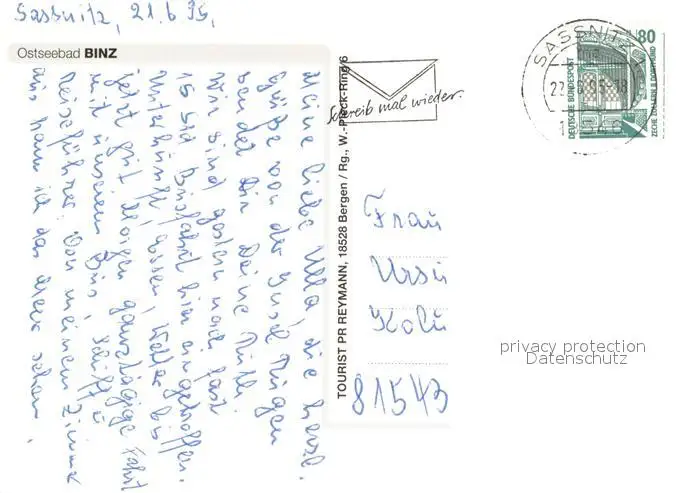 Sassnitz, 21.6.95,
Ostseebad BINZ
Meine liebe Ulla, die herzl.
Grüße von der Insel Rügen
sendet Dir Deine Ruth.
Wir sind gestern nach fast
15 Std Busfahrt hier eingetroffen.
Unterkunft, Essen, Wetter bis
jetzt gut. Morgen ganztägige Fahrt
mit unserem Bus, Schiff u
Reiseführer. Von meinem Zimmer
aus kann ich das Meer sehen,
TOURIST PR REYMANN, 18528 Bergen / Rg., W.-Pieck-Ring 6
Schreib mal wieder.
SASSNITZ
18546
80
DEUTSCHE BUNDESPOST
ZECHE ZOLLERN II DORTMUND
Frau
Ursu
81543
privacy protection
Datenschutz